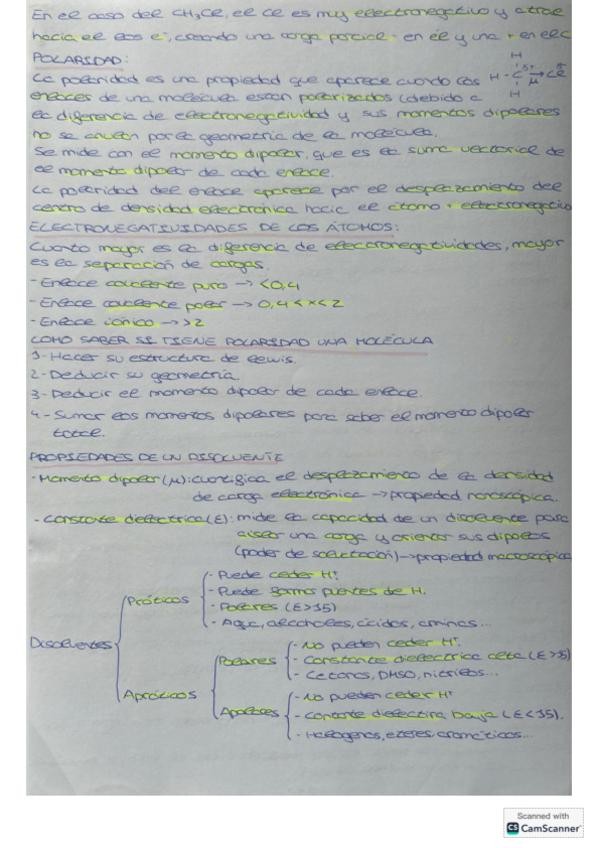 En el caso del CH3Cl, el Cl es muy electronegativo y atrae
hacia el los e-, creando una carga parcial - en él y una + en el C
POLARIDAD:
La polaridad es una propiedad que aparece cuando los
enlaces de una molécula están polarizados (debido a
la diferencia de electronegatividad y sus momentos dipolares
no se anulan por la geometría de la molécula.
H
H - C → Cl
δ+
μ
H
Se mide con el momento dipolar, que es la suma vectorial de
el momento dipolar de cada enlace.
La polaridad del enlace aparece por el desplazamiento del
centro de densidad electrónica hacia el átomo + electronegativo
ELECTRONEGATIVIDADES DE LOS ÁTOMOS:
Cuanto mayor es la diferencia de electronegatividades, mayor
es la separación de cargas.
- Enlace covalente puro -> <0,4
- Enlace covalente polar -> 0,4 < x < 2
- Enlace iónico -> >2
COMO SABER SI TIENE POLARIDAD UNA MOLÉCULA
1- Hacer su estructura de lewis.
2- Deducir su geometría.
3- Deducir el momento dipolar de cada enlace.
4- Sumar los momentos dipolares para saber el momento dipolar
total.
PROPIEDADES DE UN DISOLVENTE
- Momento dipolar (μ): cuantifica el desplazamiento de la densidad
de carga electrónica -> propiedad
- Constante dieléctrica (ε): mide la capacidad de un disolvente para
aislar una carga y orientar sus dipolos
(poder de solvatación) -> propiedad macroscópica
Disolventes
Próticos
- Puede ceder H+.
- Puede formar puentes de H.
- Polares (ε>15)
- Agua, alcoholes, ácidos, aminas...
Apróticos
Polares
- No pueden ceder H+.
- Constante dieléctrica alta (ε>15)
- Cetonas, DMSO, nitrilos...
Apolares
- No pueden ceder H+
- Constante dieléctrica baja (ε<15).
- Halógenos, éteres, aromáticos...
Scanned with
CS CamScanner